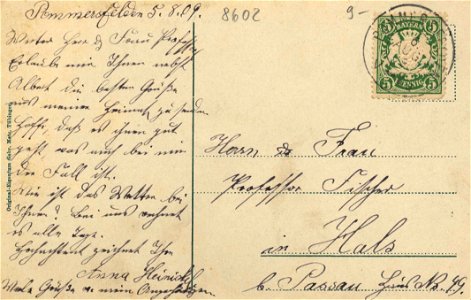 Pommersfelden 5.8.09.
8602
9-
Werter Herr & Frau Professor
Erlaube mir Ihnen nebst
Albert die besten Grüße
aus meiner Heimat zu senden
Hoffe, daß es Ihnen gut
geht was auch bei mir
der Fall ist.
Wie ist das Wetter bei
Ihnen? Bei uns regnet
es alle Tage.
Hochachtend zeichnet Ihre
Anna Heinrich
Viele Grüße v. mein Angehörigen
Original-Eigentum Gebr. Metz, Tübingen
BAYERN
5
5
PFENNIG
Herrn & Frau
Professor Fischer
in Hals
b. Passau Haus No. 49